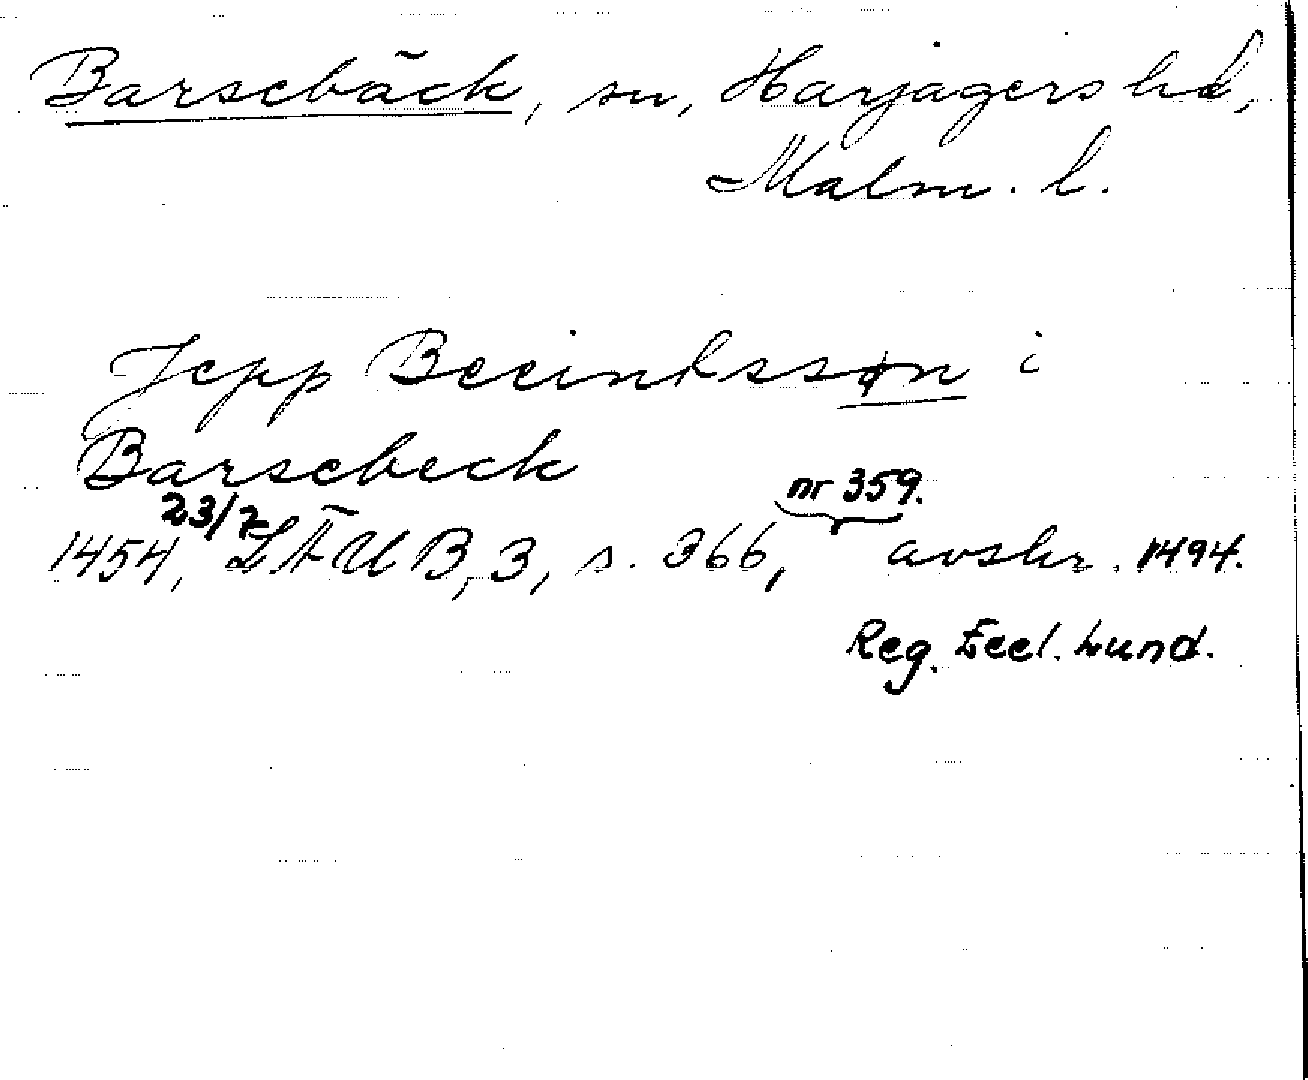 Barsebäck, sn, Harjagers hd,
Malm. l.
Jepp Beeinksøn i
Barsebeck
1454, 23/7 LÄUB, 3, s. 366, nr 359. avskr. 1494.
Reg. Eccl. Lund.